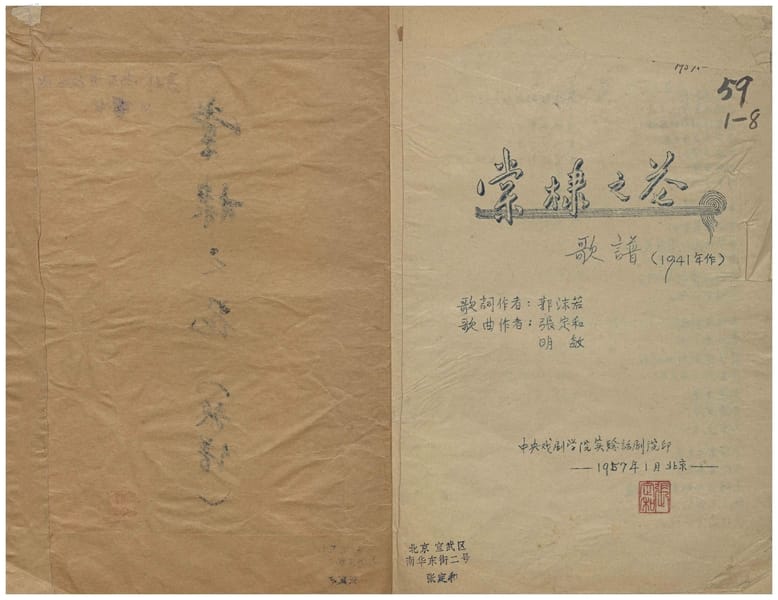 59
1-8
棠棣之花
歌譜(1941年作)
歌詞作者：郭沫若
歌曲作者：張定和
明敏
中央戏剧学院实驗話剧院印
——1957年1月北京——
張定和
北京 宣武区
南华东街二号
张定和